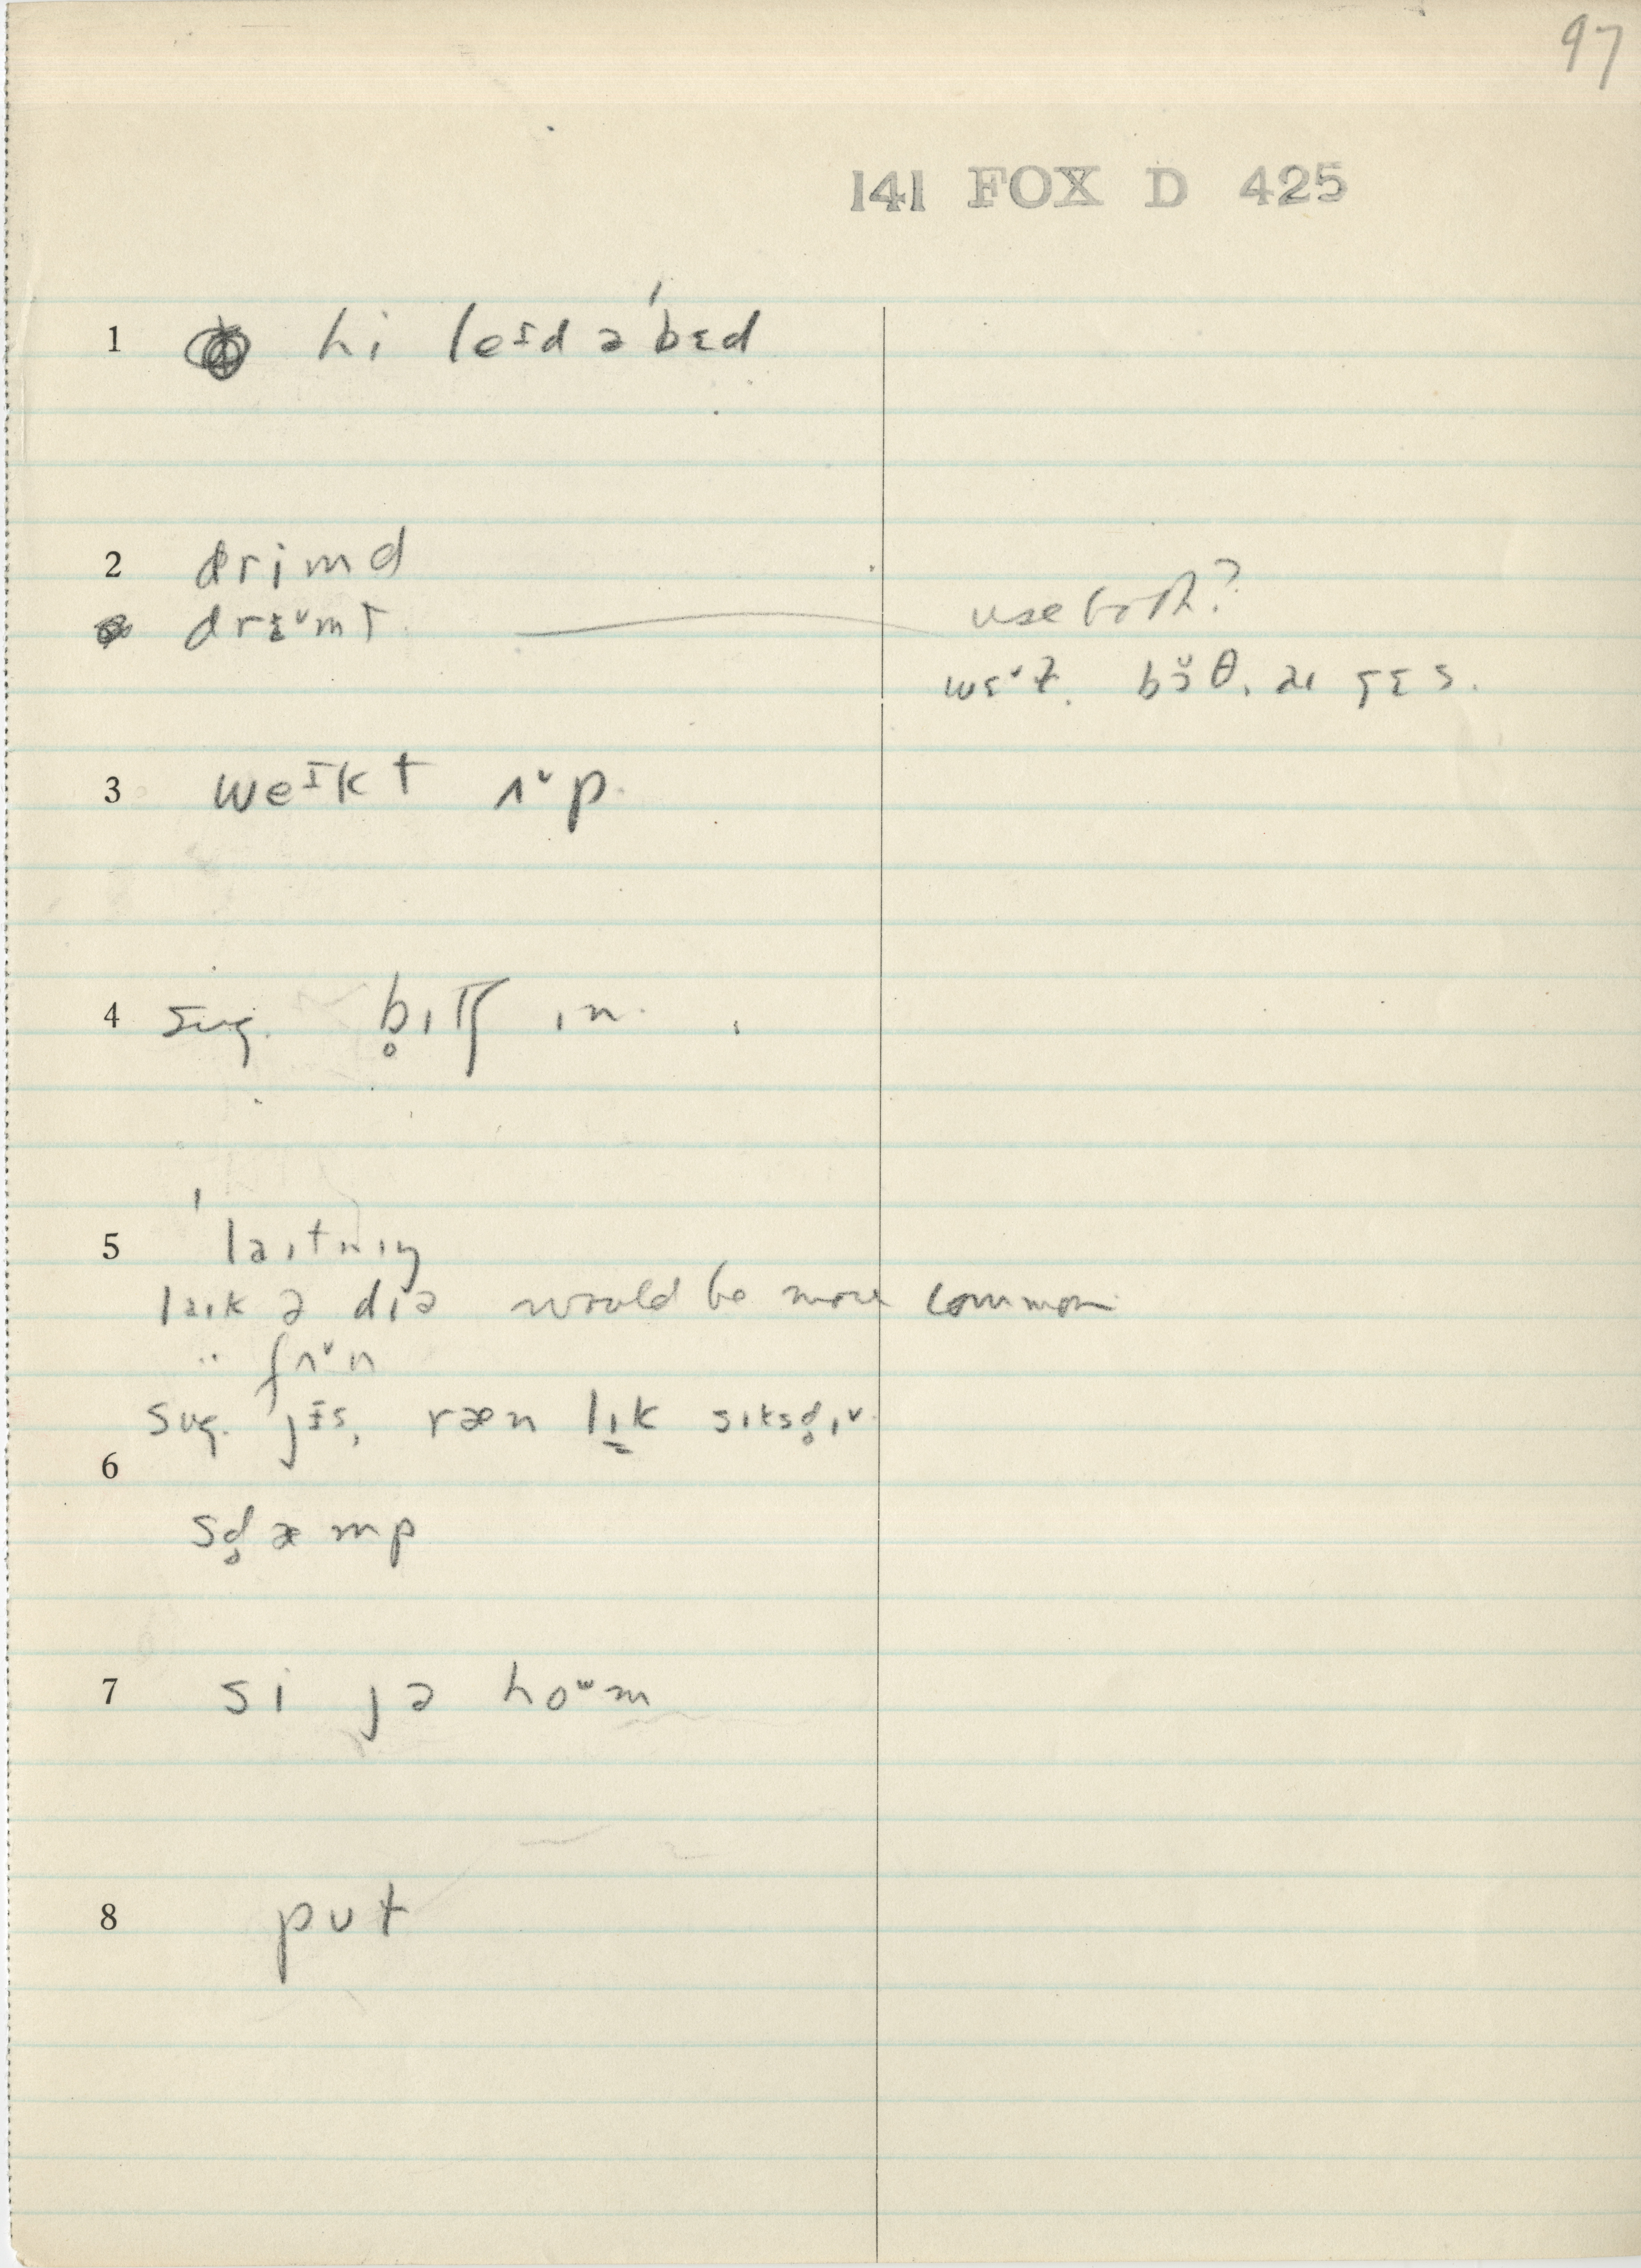 97
141 FOX D 425
1 hi leɪd ə ˈbɛd
2 drimd
drɛ˅mt use both?
wɛ˅ɫ. bɔ̆θ, aɪ gɛs.
3 weɪkt ʌ˅p.
4 sug. b̥ɪtʃ ɪn.
5 ˈlaɪtnɪŋ
laɪk ə dɪə would be more common
" fʌ˅n
sug. jɪs, ræn lɪk sɪksd̥ɪv.
6
sd̥æmp
7 si jə hoᵘm
8 put